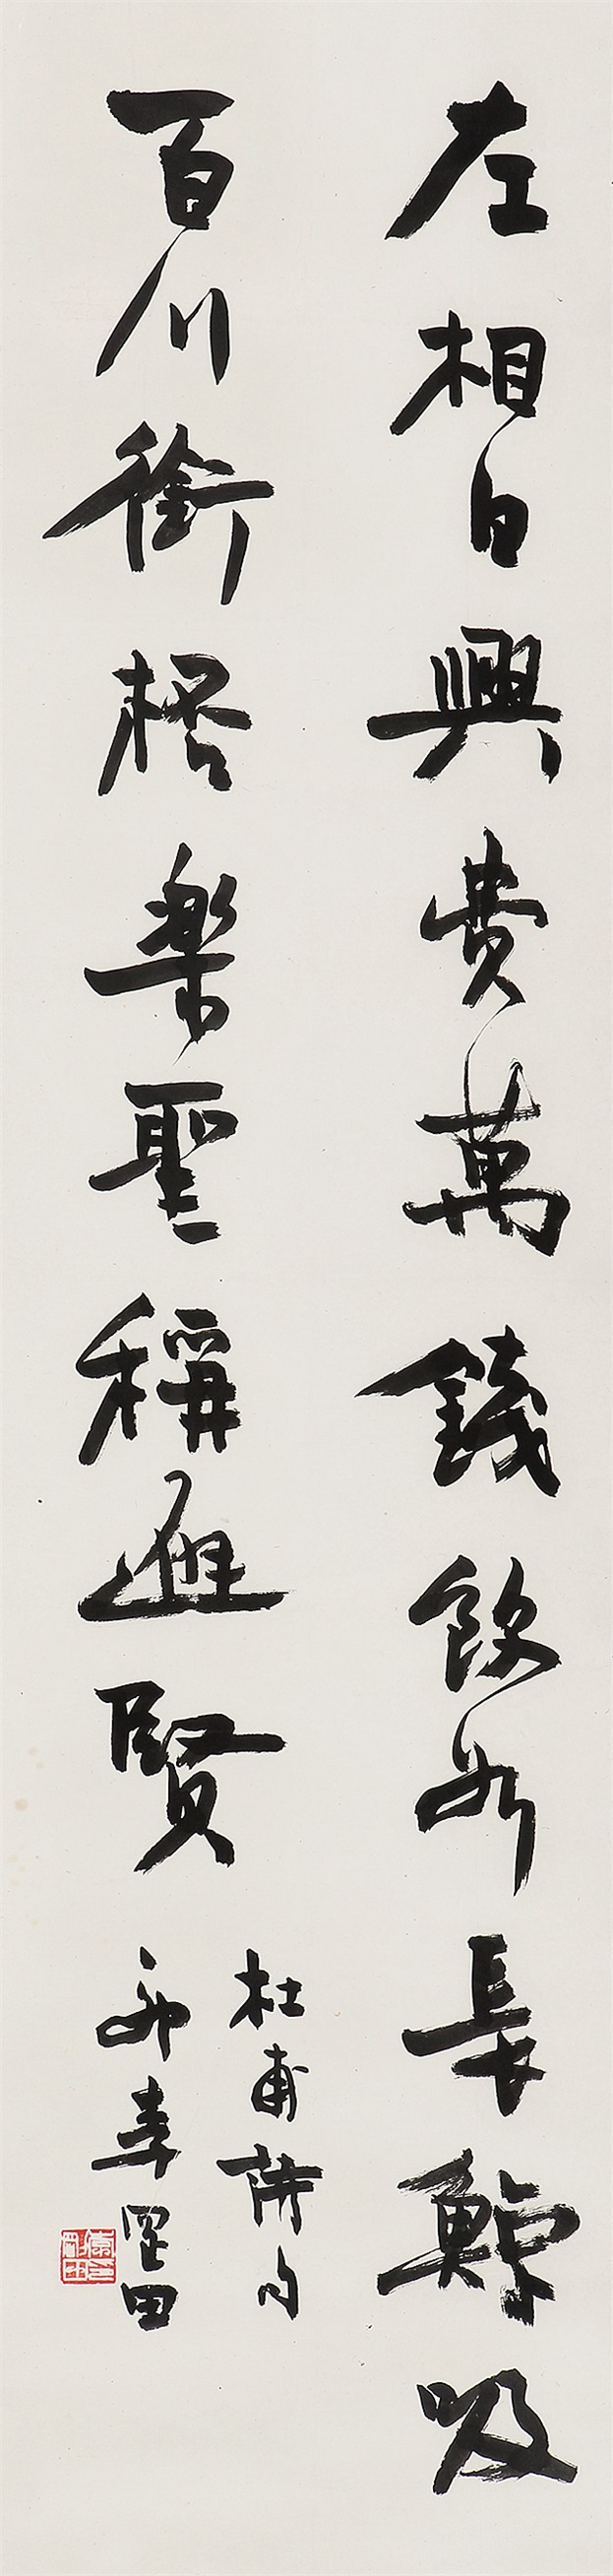 左相日興費萬錢飲如長鯨吸
百川銜桮樂聖稱避賢
杜甫詩句
李罡田